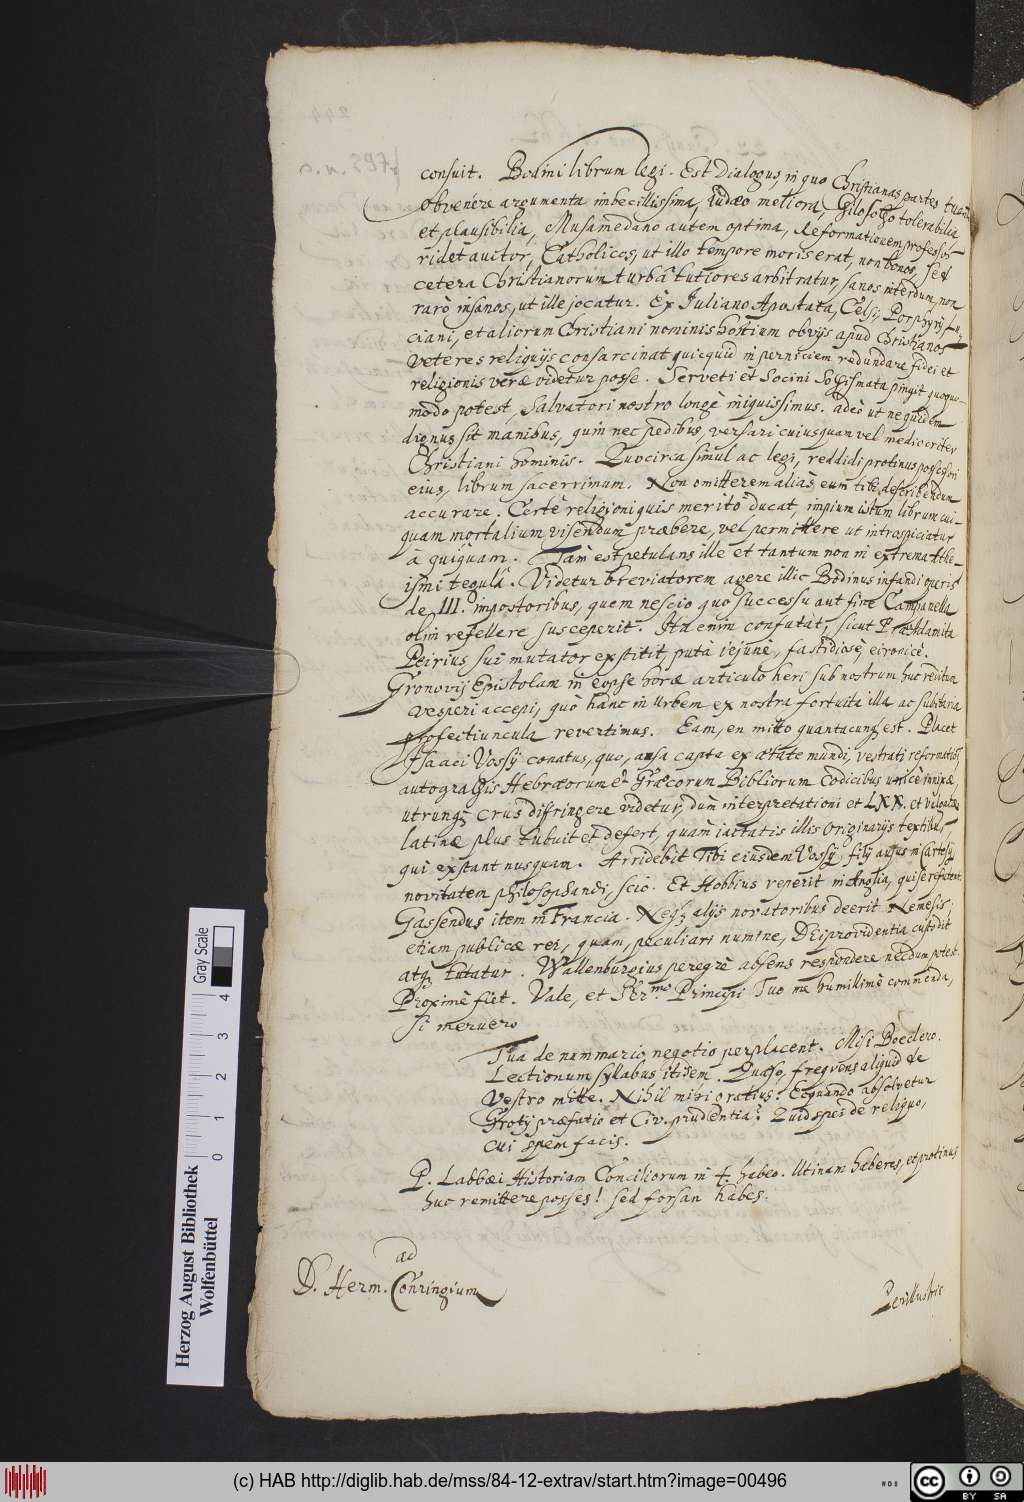 consuit. Bodini librum legi. Est Dialogus, in quo Christianas partes tuenti
obvenêre argumenta imbecillissima, Iudæo meliora, Philosopho tolerabilia
et plausibilia, Muhamedano autem optima, Reformationem professos
ridet auctor, Catholicos, ut illo tempore moris erat, non bonos, sed
cetera Christianorum turbâ tutiores arbitratur, sanos interdum, non
rarò insanos, ut ille jocatur. Ex Iuliano Apostata, Celsi, Porphyrij, Lu-
ciani, et aliorum Christiani nominis hostium obvijs apud Christianos
Veteres reliquijs consarcinat quicquid in perniciem redundare fidei et
religionis veræ videtur posse. Serveti et Socini Sophismata pingit quoquo-
modo potest, Salvatori nostro longè iniquissimus. adeò ut ne quidem
dignus sit manibus, quin nec pedibus, versari cuiusquam vel mediocriter
Christiani hominis. Quocirca simul ac legi, reddidi protinus possessori
eius, librum sacerrimum. Non omitterem aliàs eum tibi describendum
accurare. Certè religioni quis meritò ducat, impium istum librum cui-
quam mortalium visendum præbere, vel permittere ut introspiciatur
à quiquam. Tàm est petulans ille et tantum non in extrema Athe-
ismi tegulâ. Videtur breviatorem agere illic Bodinus infandi operis
de III. impostoribus, quem nescio quo successu aut fine Campanella
olim refellere susceperit. Ita enim confutat, sicut Præadamita
Peirius sui mutator exstitit putà iejunè, fastidiosè, eironicè.
Gronovij Epistolam in eopse horæ articulo heri sub nostrum huc reditum
vesperi accepi, quò hanc in Urbem ex nostra fortuita illa ac subitaria
profectiuncula revertimus. Eam, en mitto quantacunq est. Placet
Isaaci Vossij conatus, quo, ansa capta ex ætate mundi, vestrati reformationi
autographis Hebræorum et Græcorum Bibliorum Codicibus unice innixæ,
utrumq crus diffringere videtur, dum interpretationi et LXX. et vulgatæ
latinæ plus tribuit et defert, quàm iactatis illis Originarijs textibus,
qui exstant nusquam. Arridebit Tibi eiusdem Vossij, filij ausus in Cartesij
novitatem philosophandi, scio. Et Hobbius reperit in Anglia, qui se refutent,
Gassendus item in Francia. Neq alijs novatoribus deerit Nemesis,
etiam publicæ rei, quam, peculiari numine, Dei providentia custodit
atq tutatur. Wallenburgius peregrè absens respondere necdum potest.
Proximè fiet. Vale, et Ser.mo Principi Tuo me humillimè commenda,
si meruero
Tua de nummario negotio perplacent. Misi Boeclero.
Lectionum syllabus itidem. Quæso, frequens aliquid de
Vestro mitte. Nihil mihi gratius. Ecquando absolvetur
Grotij præfatio et Civ. prudentia? Quid spei de reliquo,
cui spem facis.
P. Labbæi Historiam Conciliorum in 4. habeo. Utinam haberes, et protinus
huc remittere posses! sed forsan habes.
ad
D. Herm. Conringium
Perillustris
Herzog August Bibliothek
Wolfenbüttel
Gray Scale
0 1 2 3 4
(c) HAB http://diglib.hab.de/mss/84-12-extrav/start.htm?image=00496
cc BY SA